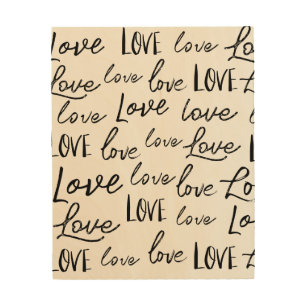 Love LOVE love Love
Love love love LOVE
love Love love Love
LOVE love love Love
Love love love Lo
Love LOVE love Love
LOVE love love LOVE L